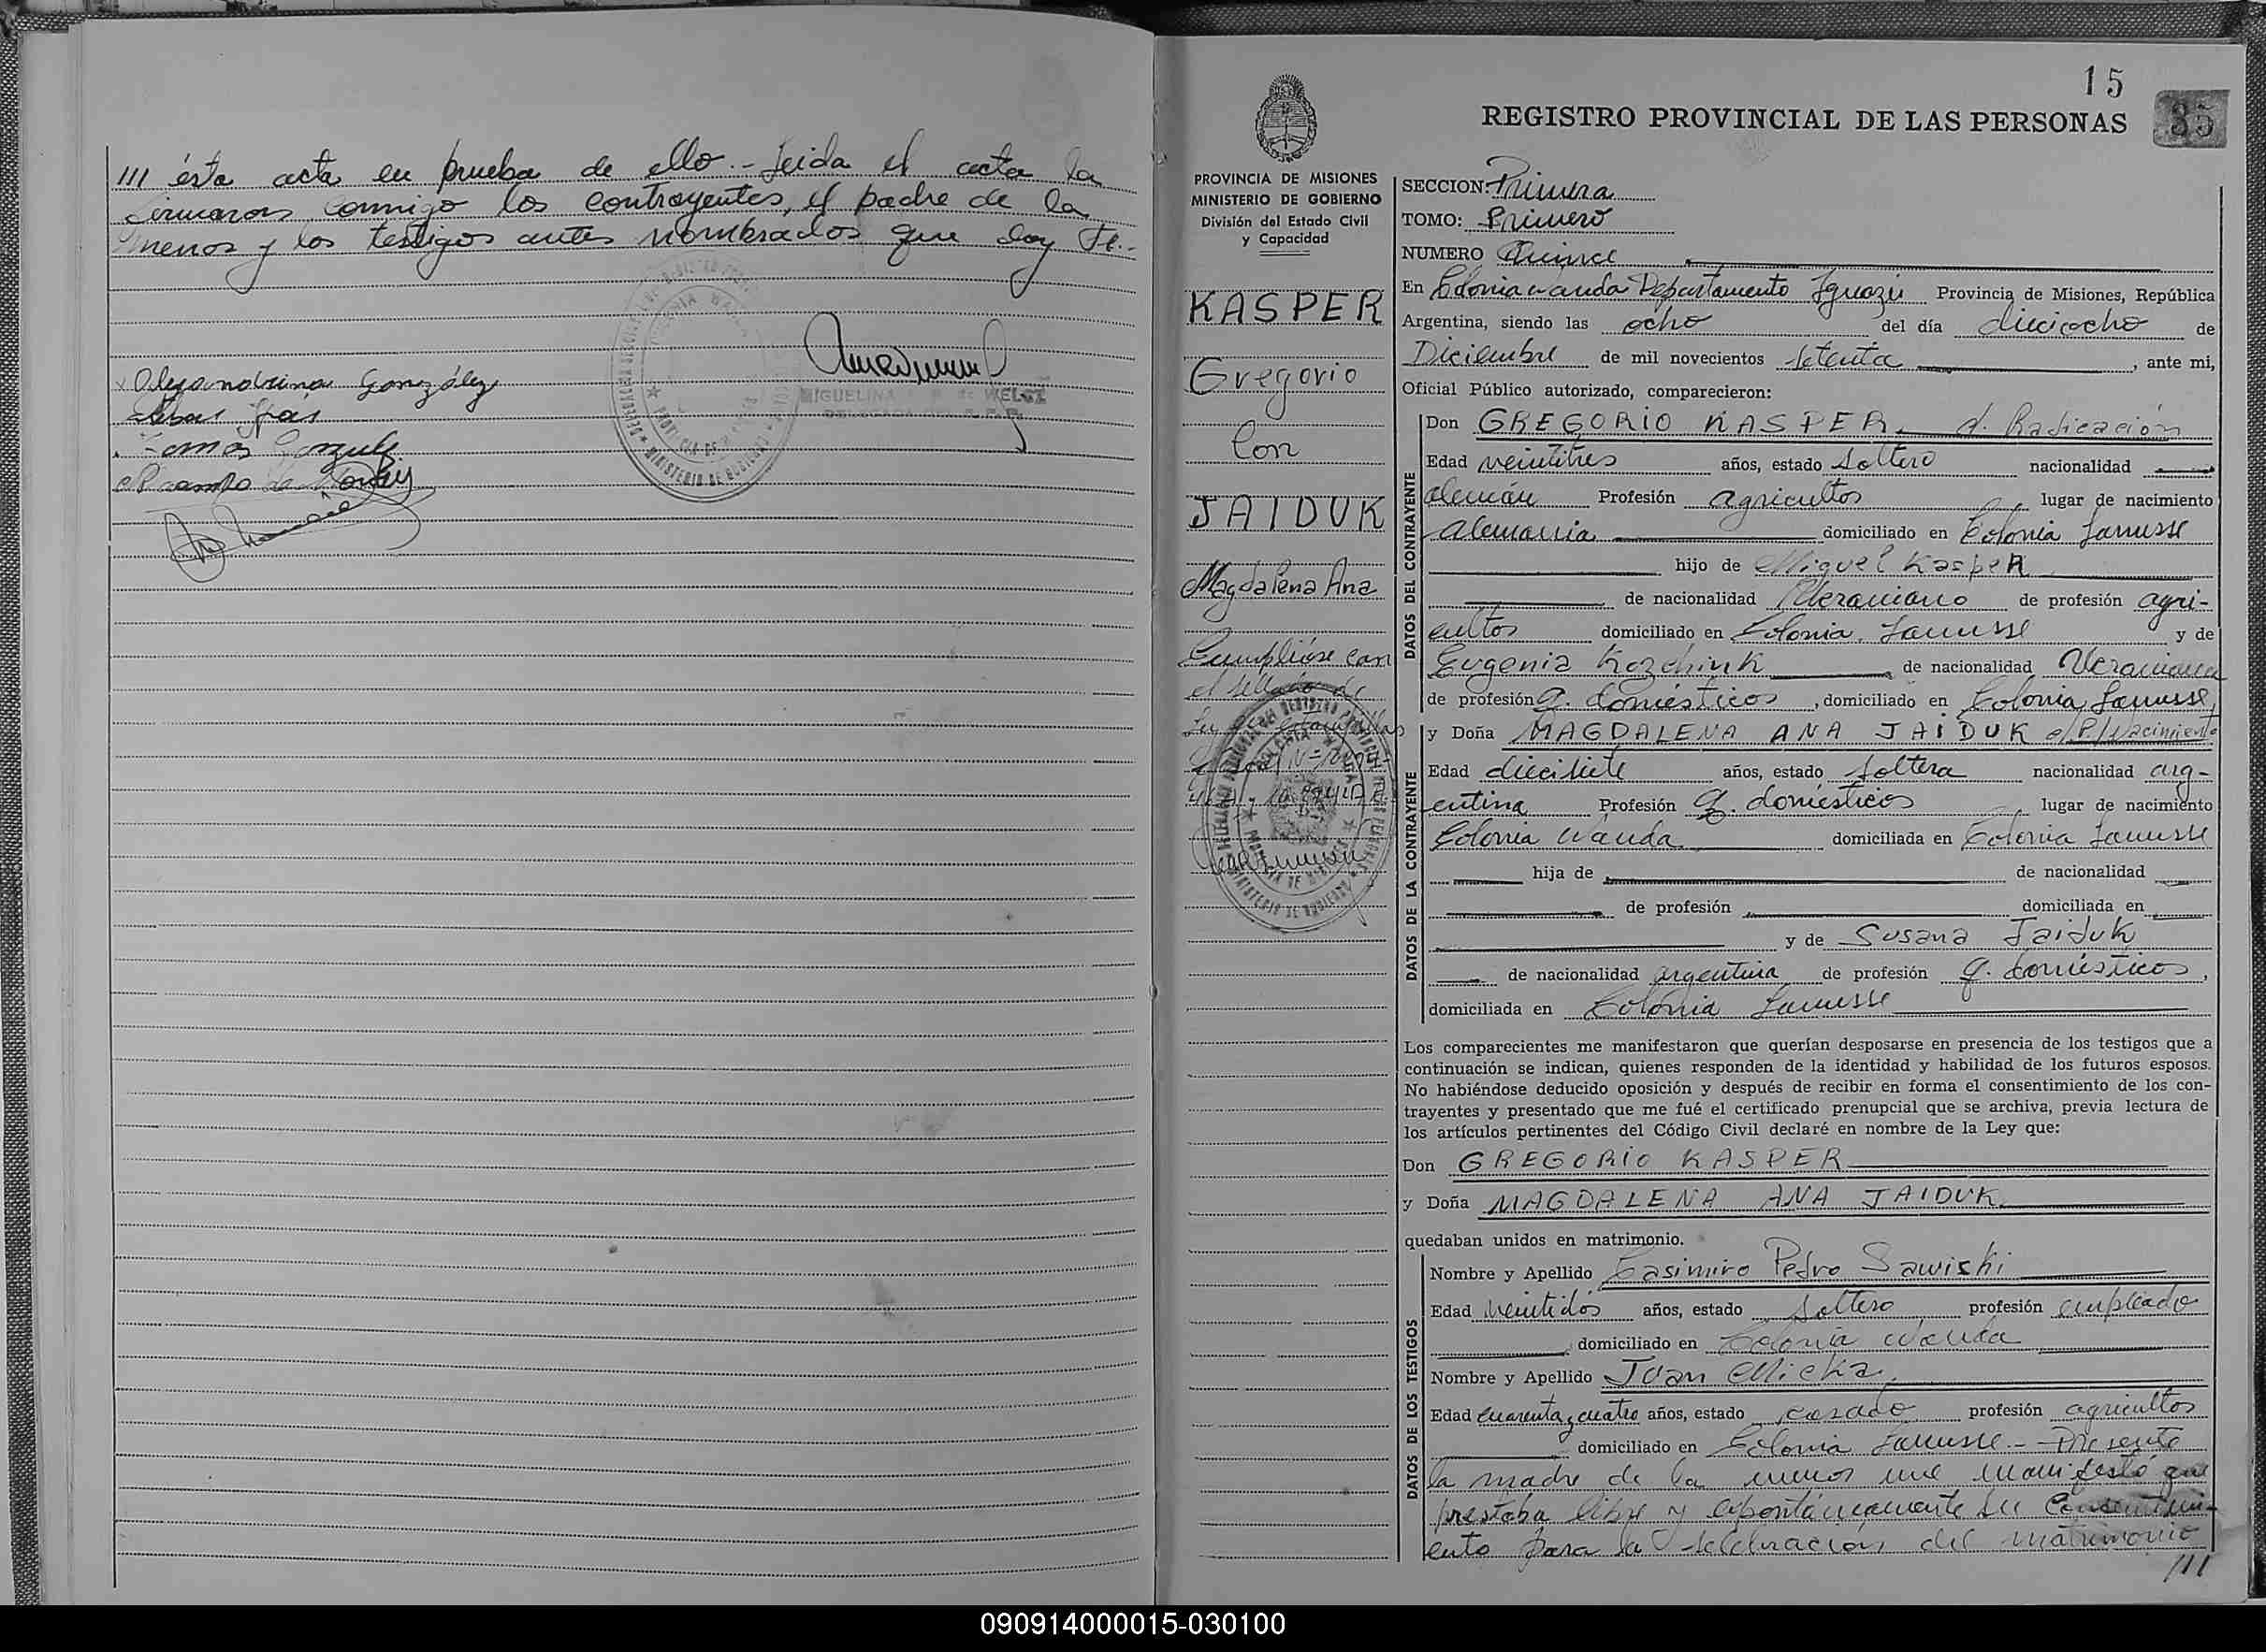 /// ésta acta en prueba de ello.- Leida el acta la
firmaron conmigo los contrayentes, el padre de la
menor y los testigos antes nombrados que doy fe.-
Alejandrina González
MIGUELINA
15
REGISTRO PROVINCIAL DE LAS PERSONAS
35
PROVINCIA DE MISIONES
MINISTERIO DE GOBIERNO
División del Estado Civil
y Capacidad
KASPER
Gregorio
Con
JAIDUK
Magdalena Ana
Cumplióse con
el sellado de
SECCION: Primera
TOMO: Primero
NUMERO Quince
En Colonia Wanda Departamento Iguazú Provincia de Misiones, República
Argentina, siendo las ocho del día dieciocho de
Diciembre de mil novecientos setenta, ante mi,
Oficial Público autorizado, comparecieron:
DATOS DEL CONTRAYENTE
Don GREGORIO KASPER. d. Radicación
Edad veintitres años, estado soltero nacionalidad
alemán Profesión agricultor lugar de nacimiento
Alemania domiciliado en Colonia Lanusse
hijo de Miguel Kasper
de nacionalidad Ucraniano de profesión agri-
cultor domiciliado en Colonia Lanusse y de
Eugenia Kozchink de nacionalidad Ucraniana
de profesión q. domésticos, domiciliado en Colonia Lanusse,
DATOS DE LA CONTRAYENTE
y Doña MAGDALENA ANA JAIDUK c/P/Nacimiento
Edad diecisiete años, estado soltera nacionalidad arg-
entina Profesión q. domésticos lugar de nacimiento
Colonia Wanda domiciliada en Colonia Lanusse
hija de de nacionalidad
de profesión domiciliada en
y de Susana Jaiduk
de nacionalidad argentina de profesión q. domésticos,
domiciliada en Colonia Lanusse
Los comparecientes me manifestaron que querían desposarse en presencia de los testigos que a
continuación se indican, quienes responden de la identidad y habilidad de los futuros esposos.
No habiéndose deducido oposición y después de recibir en forma el consentimiento de los con-
trayentes y presentado que me fué el certificado prenupcial que se archiva, previa lectura de
los artículos pertinentes del Código Civil declaré en nombre de la Ley que:
Don GREGORIO KASPER
y Doña MAGDALENA ANA JAIDUK
quedaban unidos en matrimonio.
DATOS DE LOS TESTIGOS
Nombre y Apellido Casimiro Pedro Sawiski
Edad veintidós años, estado soltero profesión empleado
domiciliado en Colonia Wanda
Nombre y Apellido Juan Micka
Edad cuarenta y cuatro años, estado casado profesión agricultor
domiciliado en Colonia Lanusse.- Presente
la madre de la menor me manifestó que
prestaba libre y espontáneamente su consentimi-
ento para la celebración del matrimonio
///
090914000015-030100